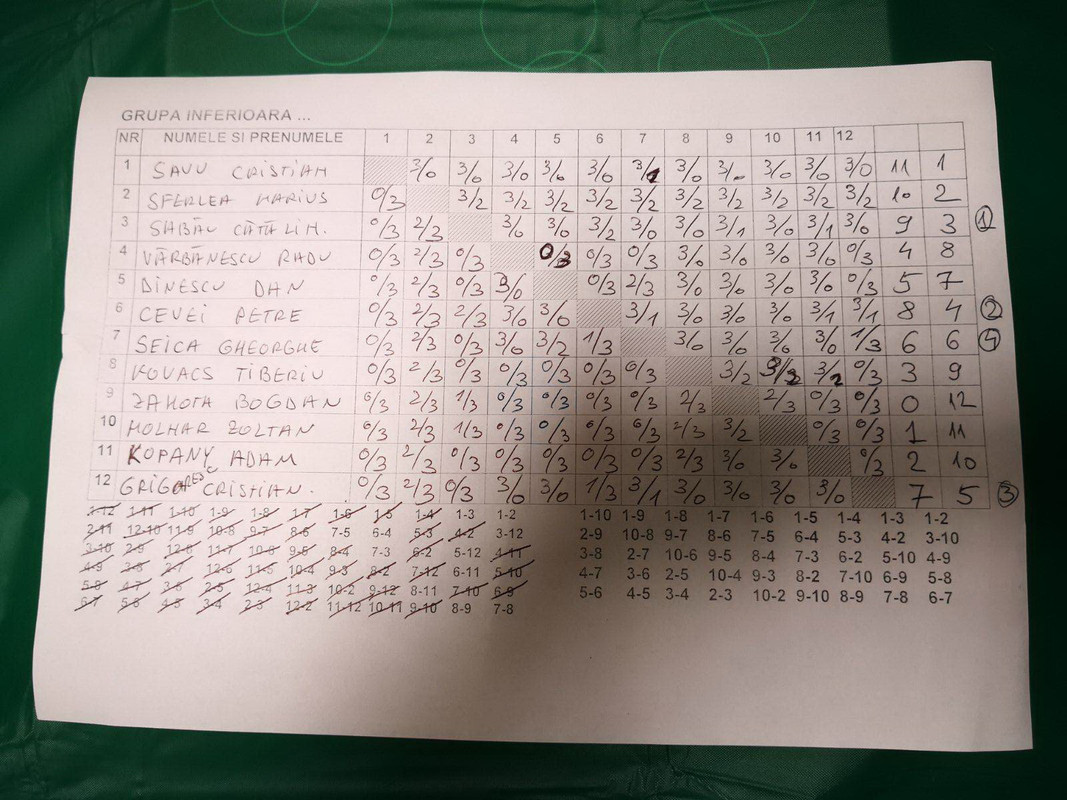 GRUPA INFERIOARA ...
NR NUMELE SI PRENUMELE 1 2 3 4 5 6 7 8 9 10 11 12
1 SAVU CRISTIAN 3/0 3/0 3/0 3/0 3/0 3/0 3/0 3/0 3/0 3/0 11 1
2 SFERLEA MARIUS 0/3 3/2 3/2 3/2 3/2 3/2 3/2 3/2 3/2 3/2 3/2 10 2
3 SABĂU CĂTĂLIN. 0/3 2/3 3/0 3/0 3/2 3/0 3/0 3/1 3/0 3/1 3/0 9 3 1
4 VĂRBĂNESCU RADU 0/3 2/3 0/3 0/3 0/3 0/3 3/0 3/0 3/0 3/0 0/3 4 8
5 DINESCU DAN 0/3 2/3 0/3 3/0 0/3 2/3 3/0 3/0 3/0 3/0 0/3 5 7
6 CEVEI PETRE 0/3 2/3 2/3 3/0 3/0 3/1 3/0 3/0 3/0 3/1 3/1 8 4 2
7 SEICA GHEORGHE 0/3 2/3 0/3 3/0 3/2 1/3 3/0 3/0 3/0 3/0 1/3 6 6 4
8 KOVACS TIBERIU 0/3 2/3 0/3 0/3 0/3 0/3 0/3 3/2 3/2 3/2 0/3 3 9
9 ZAHOTA BOGDAN 0/3 2/3 1/3 0/3 0/3 0/3 0/3 2/3 2/3 0/3 0/3 0 12
10 MOLNAR ZOLTAN 0/3 2/3 1/3 0/3 0/3 0/3 0/3 2/3 3/2 0/3 0/3 1 11
11 KOPANY ADAM 0/3 2/3 0/3 0/3 0/3 0/3 0/3 2/3 3/0 3/0 0/3 2 10
12 CRISTIAN. 0/3 2/3 0/3 3/0 3/0 1/3 3/1 3/0 3/0 3/0 3/0 7 5 3
1-12 1-11 1-10 1-9 1-8 1-7 1-6 1-5 1-4 1-3 1-2 1-10 1-9 1-8 1-7 1-6 1-5 1-4 1-3 1-2
2-11 12-10 11-9 10-8 9-7 8-6 7-5 6-4 5-3 4-2 3-12 2-9 10-8 9-7 8-6 7-5 6-4 5-3 4-2 3-10
3-10 2-9 12-8 11-7 10-6 9-5 8-4 7-3 6-2 5-12 4-11 3-8 2-7 10-6 9-5 8-4 7-3 6-2 5-10 4-9
4-9 3-8 2-7 12-6 11-5 10-4 9-3 8-2 7-12 6-11 5-10 4-7 3-6 2-5 10-4 9-3 8-2 7-10 6-9 5-8
5-8 4-7 3-6 2-5 12-4 11-3 10-2 9-12 8-11 7-10 6-9 5-6 4-5 3-4 2-3 10-2 9-10 8-9 7-8 6-7
6-7 5-6 4-5 3-4 2-3 12-2 11-12 10-11 9-10 8-9 7-8